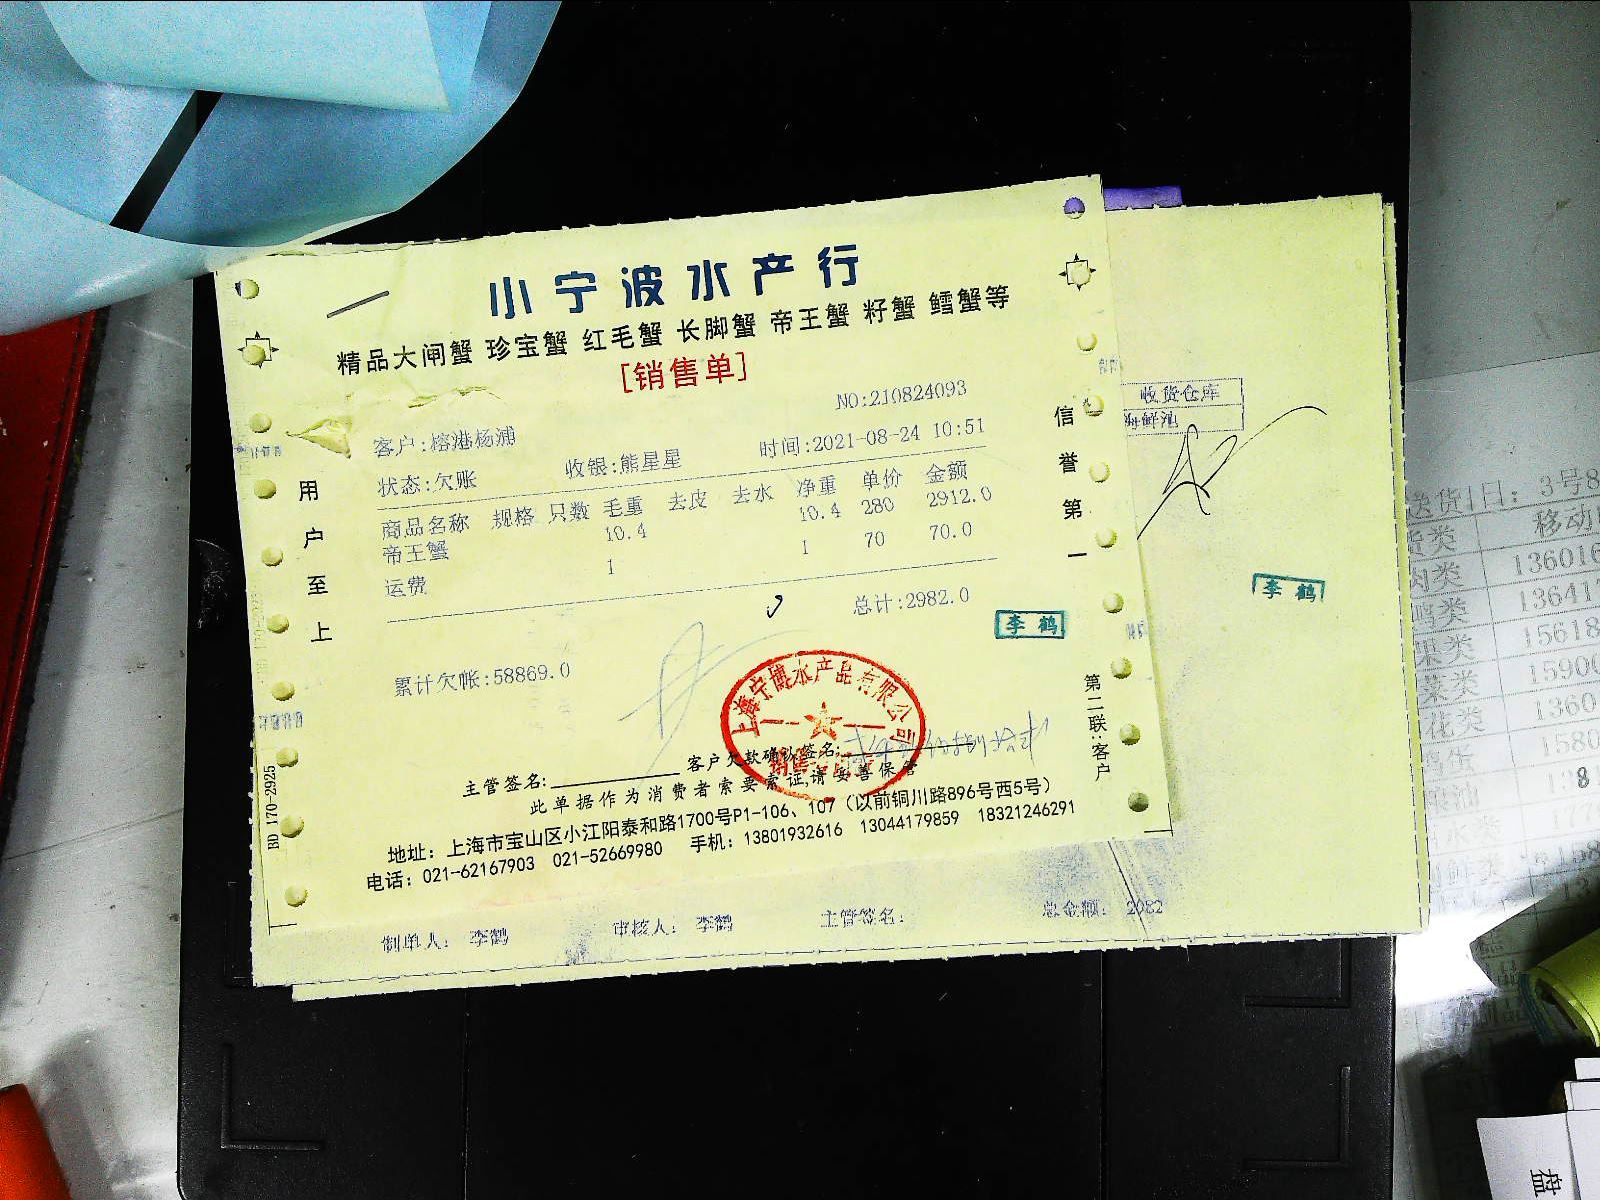 小宁波水产行
精品大闸蟹 珍宝蟹 红毛蟹 长脚蟹 帝王蟹 籽蟹 鳕蟹等
[销售单]
NO:210824093
客户:榕港杨浦
时间:2021-08-24 10:51
状态:欠账 收银:熊星星
商品名称 规格 只数 毛重 去皮 去水 净重 单价 金额
帝王蟹 10.4 10.4 280 2912.0
运费 1 1 70 70.0
总计:2982.0
累计欠帐:58869.0
李鹤
上海宁博水产品有限公司
主管签名: 客户欠款确认签名:
此单据作为消费者索要索证,请妥善保管
地址：上海市宝山区小江阳泰和路1700号P1-106、107（以前铜川路896号西5号）
电话：021-62167903 021-52669980 手机：13801932616 13044179859 18321246291
用户至上
信誉第一
第二联:客户
BD 170-2925
收货仓库
李鹤
制单人： 李鹤 审核人： 李鹤 主管签名： 总金额：
送货日：3号8
移动
肉类 13601
1364
果类 15618
菜类 1590
花类 1360
1580
盘